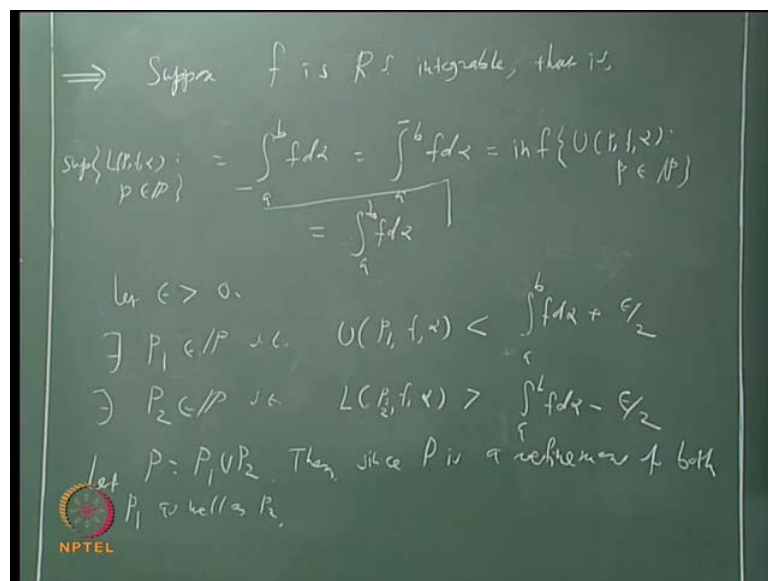 ⟹ Suppose f is R.S. integrable, that is,
sup{L(P,f,α) : P ∈ ℙ} = ∫_a^b f dα = ∫_a^b f dα = inf{U(P,f,α) : P ∈ ℙ}
= ∫_a^b f dα
Let ϵ > 0.
∃ P₁ ∈ ℙ s.t. U(P₁, f, α) < ∫_a^b f dα + ϵ/2
∃ P₂ ∈ ℙ s.t. L(P₂, f, α) > ∫_a^b f dα - ϵ/2
Let P = P₁ ∪ P₂. Then, since P is a refinement of both
P₁ as well as P₂,
NPTEL